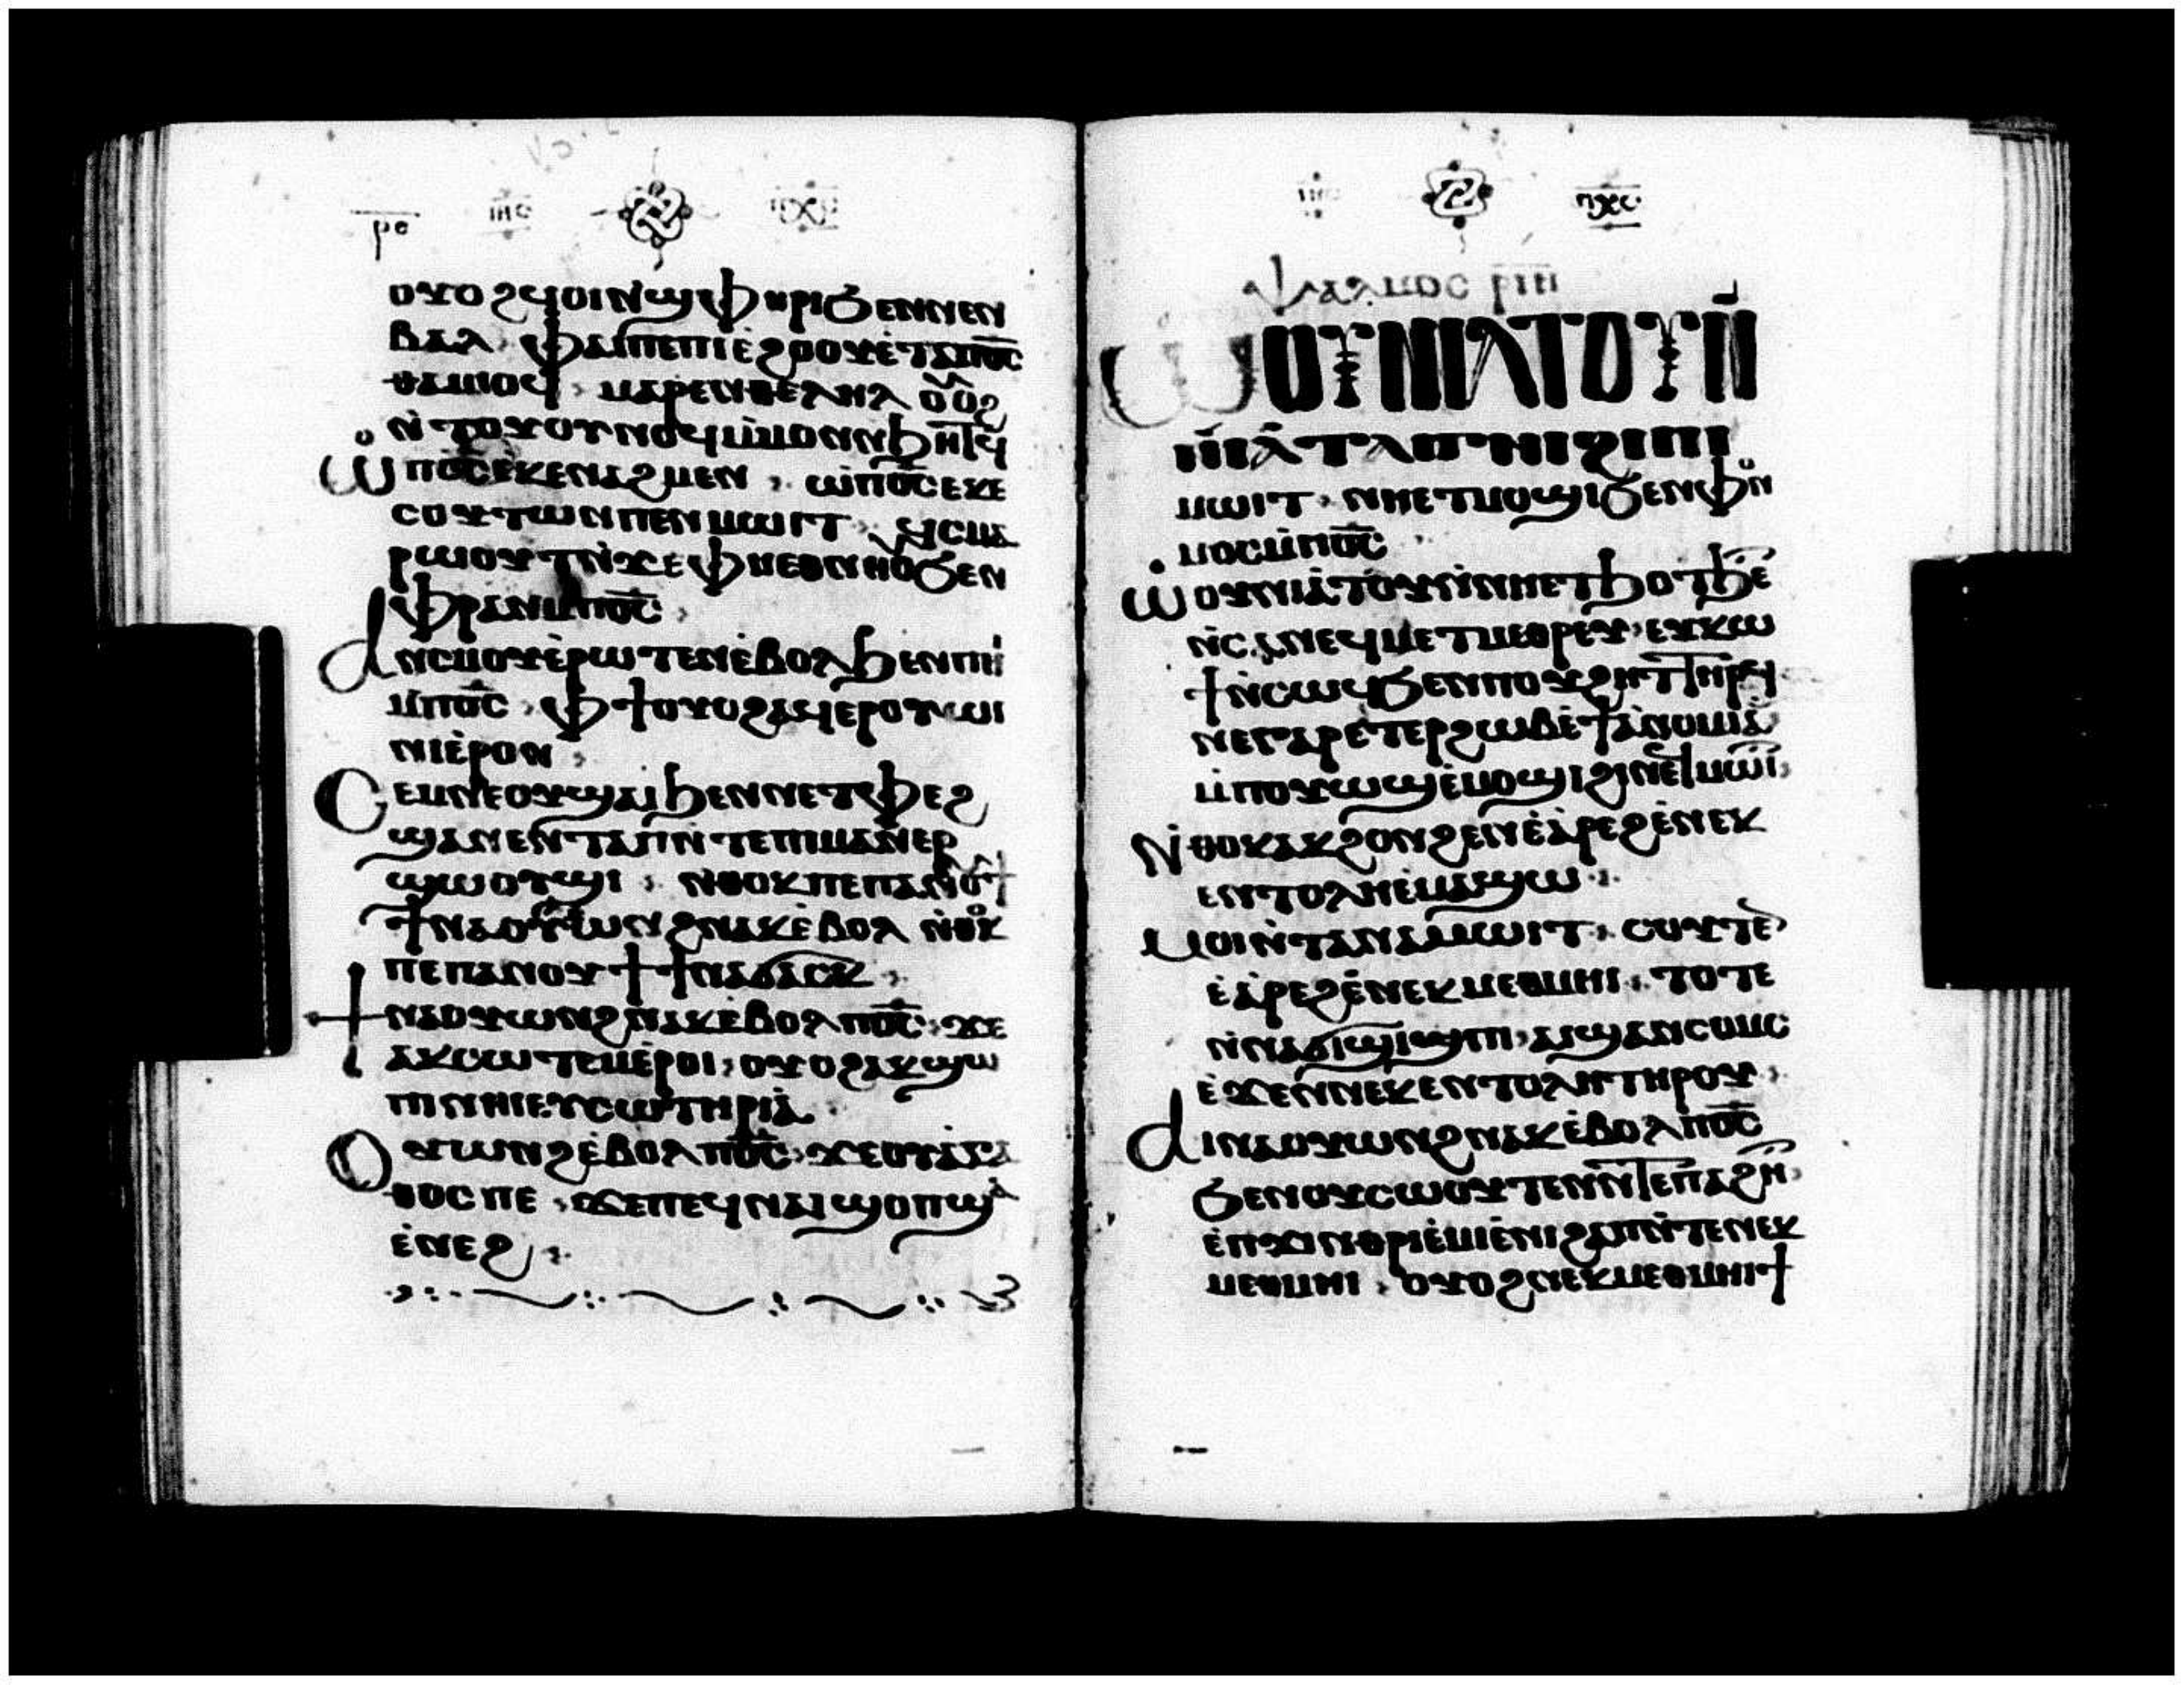 ⲣⲟ ⲓⲏⲥ ⲡⲭⲥ
ⲟⲩⲟϩ ϥⲟⲓ ⲛ̀ϣⲫⲏⲣⲓ ϭⲉⲛ ⲛⲉⲛ
ⲃⲁⲗ ⲫⲁⲓ ⲡⲉ ⲡⲓⲉϩⲟⲟⲩ ⲉ̀ⲧⲁ ⲡⲟ̅ⲥ̅
ⲑⲁⲙⲓⲟϥ ⲙⲁⲣⲉⲛⲑⲉⲗⲏⲗ ⲟⲩⲟϩ
ⲛ̀ⲧⲟⲩⲟⲩⲛⲟϥ ⲙ̀ⲙⲟⲛ ⲛϧⲏⲧϥ
ⲱ̀ ⲡⲟ̅ⲥ̅ ⲉⲕⲉⲛⲁϩⲙⲉⲛ ⲱ̀ ⲡⲟ̅ⲥ̅ ⲉⲕⲉ
ⲥⲟⲩⲧⲱⲛ ⲡⲉⲛⲙⲱⲓⲧ ϥ̀ⲥⲙⲁ
ⲣⲱⲟⲩⲧ ⲛ̀ϫⲉ ⲫⲏⲉⲑⲛⲏⲟⲩ ϭⲉⲛ
ⲫⲣⲁⲛ ⲙ̀ⲡⲟ̅ⲥ̅
ⲁⲛⲥⲙⲟⲩ ⲉ̀ⲣⲱⲧⲉⲛ ⲉ̀ⲃⲟⲗ ϧⲉⲛ ⲡⲏⲓ
ⲙ̀ⲡⲟ̅ⲥ̅ ⲫϯ ⲟⲩⲟϩ ⲁϥⲉⲣⲟⲩⲱⲓ
ⲛⲓ ⲉ̀ⲣⲟⲛ
ⲥⲉⲙⲛⲉ ⲟⲩϣⲁⲓ ϧⲉⲛ ⲛⲉⲧⲫⲉϩ
ϣⲁ ⲛⲉⲛⲧⲁⲡ ⲛ̀ⲧⲉ ⲡⲓⲙⲁⲛⲉⲣ
ϣⲱⲟⲩϣⲓ ⲛⲑⲟⲕ ⲡⲉ ⲡⲁⲛⲟⲩϯ
ϯⲛⲁⲟⲩⲱⲛϩ ⲛⲁⲕ ⲉ̀ⲃⲟⲗ ⲛ̀ⲑⲟⲕ
ⲡⲉ ⲡⲁⲛⲟⲩϯ ϯⲛⲁϭⲁⲥⲕ
ϯⲛⲁⲟⲩⲱⲛϩ ⲛⲁⲕ ⲉ̀ⲃⲟⲗ ⲡⲟ̅ⲥ̅ ϫⲉ
ⲁⲕⲥⲱⲧⲉⲙ ⲉ̀ⲣⲟⲓ ⲟⲩⲟϩ ⲁⲕϣⲱ
ⲡⲓ ⲛⲏⲓ ⲉⲩⲥⲱⲧⲏⲣⲓⲁ̀
ⲟⲩⲱⲛϩ ⲉ̀ⲃⲟⲗ ⲡⲟ̅ⲥ̅ ϫⲉ ⲟⲩⲁⲅⲁ
ⲑⲟⲥ ⲡⲉ ϫⲉ ⲡⲉϥⲛⲁⲓ ϣⲟⲡ ϣⲁ
ⲉ̀ⲛⲉϩ
ⲓⲏⲥ ⲡⲭⲥ
ⲯⲁⲗⲙⲟⲥ ⲣⲓⲏ
ⲱⲟⲩⲛⲓⲁⲧⲟⲩ ⲛ̀
ⲛⲓⲁ̀ⲧⲁϭⲛⲓ ϩⲓ ⲡⲓ
ⲙⲱⲓⲧ ⲛⲏⲉⲧⲙⲟϣⲓ ϭⲉⲛ ⲫⲛⲟ
ⲙⲟⲥ ⲙ̀ⲡⲟ̅ⲥ̅
ⲱⲟⲩⲛⲓⲁ̀ⲧⲟⲩ ⲛ̀ⲛⲏⲉⲧϧⲟⲧϧⲉⲧ
ⲛ̀ⲥⲁ ⲛⲉϥⲙⲉⲧⲙⲉⲑⲣⲉⲩ ⲉⲩⲕⲱ
ϯ ⲛ̀ⲥⲱϥ ϭⲉⲛ ⲡⲟⲩϩⲏⲧ ⲧⲏⲣϥ
ⲛⲉ ⲅⲁⲣ ⲉ̀ⲧⲉⲣϩⲱⲃ ⲉ̀ϯⲁ̀ⲛⲟⲙⲓⲁ̀
ⲙ̀ⲡⲟⲩⲱϣ ⲉ̀ⲙⲟϣⲓ ϩⲓ ⲛⲉϥⲙⲱⲓⲧ
ⲛ̀ⲑⲟⲕ ⲁⲕϩⲟⲛϩⲉⲛ ⲉ̀ⲁ̀ⲣⲉϩ ⲉ̀ⲛⲉⲕ
ⲉⲛⲧⲟⲗⲏ ⲉ̀ⲙⲁϣⲱ
ⲙⲟⲓ ⲛ̀ⲧⲁ ⲛⲁⲙⲱⲓⲧ ⲥⲟⲩⲧⲉⲛ
ⲉ̀ⲁ̀ⲣⲉϩ ⲉ̀ⲛⲉⲕⲙⲉⲑⲙⲏⲓ ⲧⲟⲧⲉ
ⲛ̀ⲛⲁϭⲓϣⲓⲡⲓ ⲁⲓϣⲁⲛⲥⲟⲙⲥ
ⲉ̀ϫⲉⲛ ⲛⲉⲕⲉⲛⲧⲟⲗⲏ ⲧⲏⲣⲟⲩ
ⲁⲓⲛⲁⲟⲩⲱⲛϩ ⲛⲁⲕ ⲉ̀ⲃⲟⲗ ⲡⲟ̅ⲥ̅
ϭⲉⲛ ⲟⲩⲥⲱⲟⲩⲧⲉⲛ ⲛ̀ⲧⲉ ⲡⲁϩⲏⲧ
ⲉ̀ⲡϫⲓⲛⲑⲣⲓⲉ̀ⲙⲓ ⲉ̀ⲛⲓϩⲁⲡ ⲛ̀ⲧⲉ ⲛⲉⲕ
ⲙⲉⲑⲙⲏⲓ ⲟⲩⲟϩ ⲛⲉⲕⲙⲉⲑⲙⲏⲓ ϯ